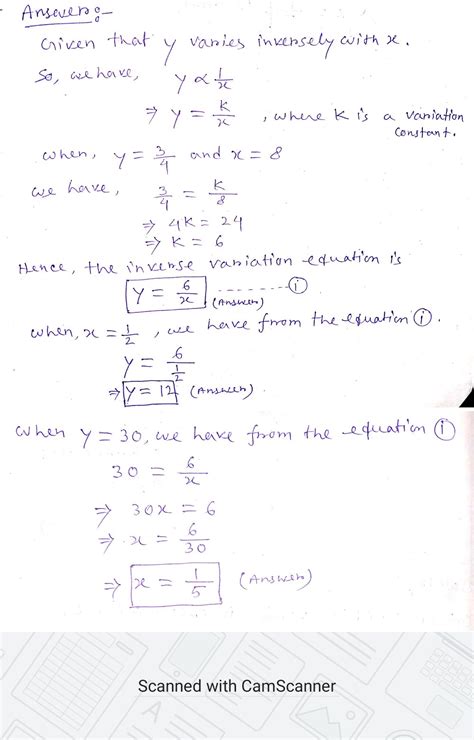 Answer:-
Given that y varies inversely with x.
So, we have, y ∝ 1/x
⇒ y = K/x , where K is a variation constant.
when, y = 3/4 and x = 8
we have, 3/4 = K/8
⇒ 4K = 24
⇒ K = 6
Hence, the inverse variation equation is
y = 6/x (Answer) --------- (i)
when, x = 1/2 , we have from the equation (i).
y = 6/(1/2)
⇒ y = 12 (Answer).
When y = 30, we have from the equation (i)
30 = 6/x
⇒ 30x = 6
⇒ x = 6/30
⇒ x = 1/5 (Answer)
Scanned with CamScanner